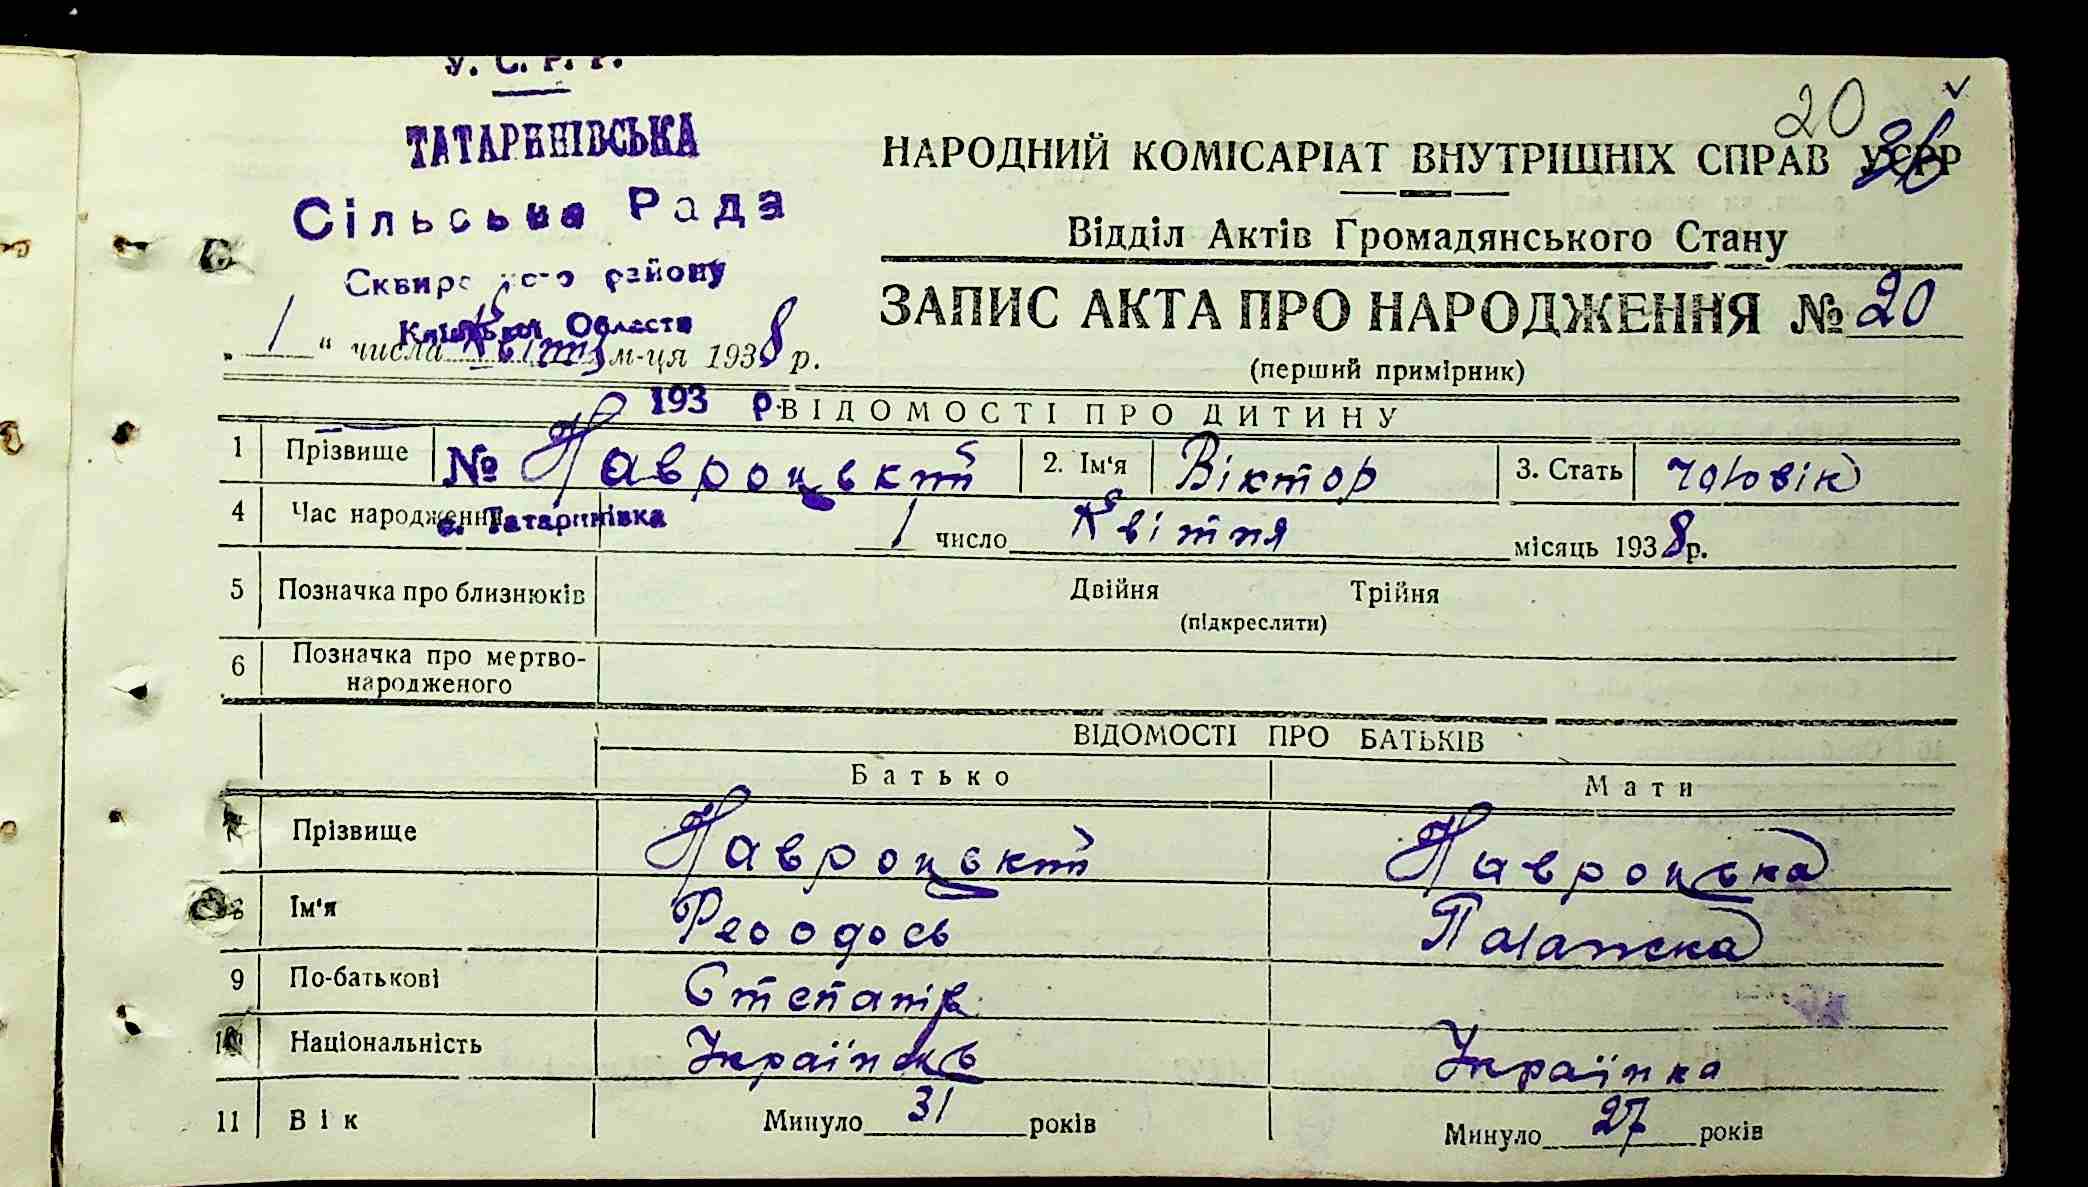 У. С. Р. Р.
ТАТАРИНІВСЬКА
Сільська Рада
Сквирського району
Київської Области
193 р.
№
с. Татаринівка
20
36
НАРОДНИЙ КОМІСАРІАТ ВНУТРІШНІХ СПРАВ УСРР
Відділ Актів Громадянського Стану
ЗАПИС АКТА ПРО НАРОДЖЕННЯ № 20
(перший примірник)
„ 1 “ числа Квітня м-ця 1938 р.
ВІДОМОСТІ ПРО ДИТИНУ
1 Прізвище Навроцький 2. Ім'я Віктор 3. Стать чоловік
4 Час народження 1 число Квітня місяць 1938 р.
5 Позначка про близнюків Двійня Трійня
(підкреслити)
6 Позначка про мертво-
народженого
ВІДОМОСТІ ПРО БАТЬКІВ
Батько Мати
7 Прізвище Навроцький Навроцька
8 Ім'я Феодось Палажка
9 По-батькові Степанів
10 Національність Українець Українка
11 Вік Минуло 31 років Минуло 27 років